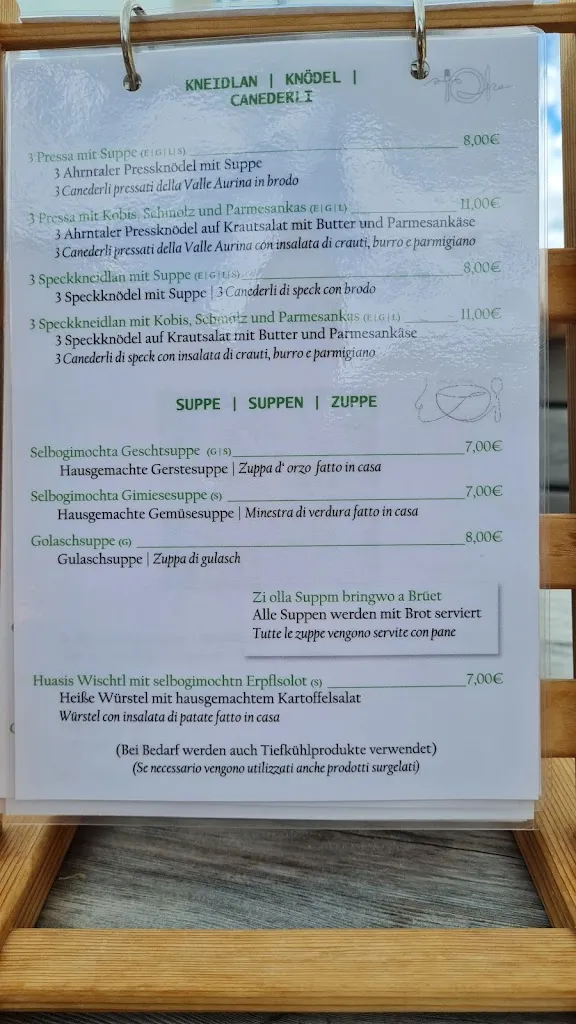 KNEIDLAN | KNÖDEL |
CANEDERLI
3 Pressa mit Suppe (E|G|L|S) 8,00€
3 Ahrntaler Pressknödel mit Suppe
3 Canederli pressati della Valle Aurina in brodo
3 Pressa mit Kobis, Schmolz und Parmesankas (E|G|L) 11,00€
3 Ahrntaler Pressknödel auf Krautsalat mit Butter und Parmesankäse
3 Canederli pressati della Valle Aurina con insalata di crauti, burro e parmigiano
3 Speckkneidlan mit Suppe (E|G|L|S) 8,00€
3 Speckknödel mit Suppe | 3 Canederli di speck con brodo
3 Speckkneidlan mit Kobis, Schmolz und Parmesankas (E|G|L) 11,00€
3 Speckknödel auf Krautsalat mit Butter und Parmesankäse
3 Canederli di speck con insalata di crauti, burro e parmigiano
SUPPE | SUPPEN | ZUPPE
Selbogimochta Geschtsuppe (G|S) 7,00€
Hausgemachte Gerstesuppe | Zuppa d' orzo fatto in casa
Selbogimochta Gimiesesuppe (S) 7,00€
Hausgemachte Gemüsesuppe | Minestra di verdura fatto in casa
Golaschsuppe (G) 8,00€
Gulaschsuppe | Zuppa di gulasch
Zi olla Suppm bringwo a Brüet
Alle Suppen werden mit Brot serviert
Tutte le zuppe vengono servite con pane
Huasis Wischtl mit selbogimochtn Erpflsolot (S) 7,00€
Heiße Würstel mit hausgemachtem Kartoffelsalat
Würstel con insalata di patate fatto in casa
(Bei Bedarf werden auch Tiefkühlprodukte verwendet)
(Se necessario vengono utilizzati anche prodotti surgelati)